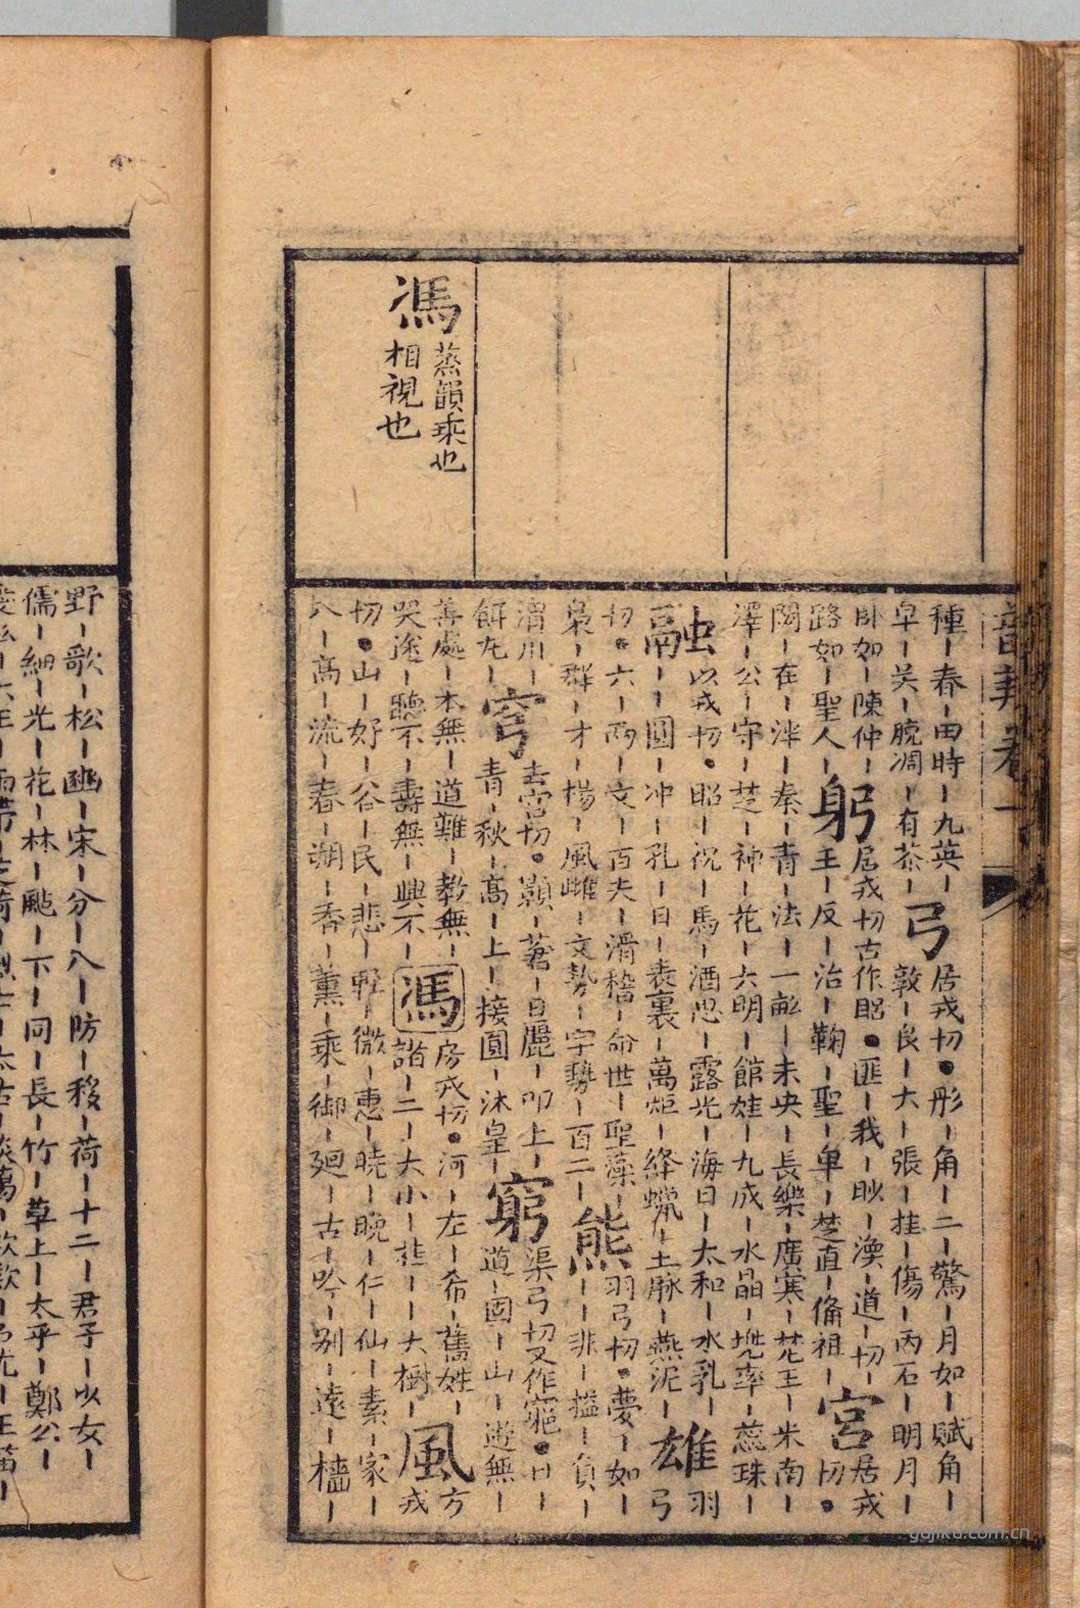 馮
蒸韻乘也
相視也
韻考一
種丨春丨田時丨九英丨
皐丨关丨腕凋丨有茶丨弓居戎切●彤丨角丨二丨驚丨月如丨賦角丨
敦丨良丨大丨張丨挂丨傷丨丙石丨明月丨
卧如丨陳仲丨
路如丨聖人丨躬居戎切古作躳●匪丨我丨眇丨渙丨道丨切丨
王丨反丨治丨鞠丨聖丨单丨楚直丨備祖丨宮居戎切●
閟丨在丨泮丨秦丨青丨法丨一畝丨未央丨長樂丨廣寒丨花王丨米南丨
澤丨公丨守丨楚丨神丨花丨六明丨館娃丨九成丨水晶丨兜率丨蕊珠丨
融以戎切●昭丨祝丨馬丨酒思丨露光丨海日丨太和丨水乳丨
丨丨圓丨冲丨孔丨日丨表裏丨萬炬丨絳蠟丨土脉丨燕泥丨雄羽弓
切●六丨兩丨文丨百夫丨滑稽丨命世丨聖藻丨
梟丨群丨才丨楊丨風雌丨文勢丨字勢丨百二丨熊羽弓切●夢丨如丨
丨非丨搤丨負丨
渭川丨
餌九丨穹去宮切●顥丨蒼丨日麗丨叩上丨
青丨秋丨高丨上丨接圓丨沐皇丨窮渠弓切又作竆●日丨
道丨固丨山丨遊無丨
善處丨本無丨道難丨教無丨
哭途丨聽不丨壽無丨興不丨馮房戎切●河丨左丨希丨舊姓丨
諧丨二丨大小丨韭丨大樹丨風方戎
切●山丨好丨谷丨民丨悲丨輕丨微丨惠丨曉丨晚丨仁丨仙丨素丨家丨
八丨高丨流丨春丨溯丨香丨薰丨乘丨御丨廻丨古丨吟丨别丨遠丨檣丨
野丨歌丨松丨幽丨宋丨分丨八丨防丨移丨荷丨十二丨君子丨少女丨
儒丨細丨光丨花丨林丨颭丨下丨同丨長丨竹丨草上丨太乎丨鄭公丨
gujiku.com.cn